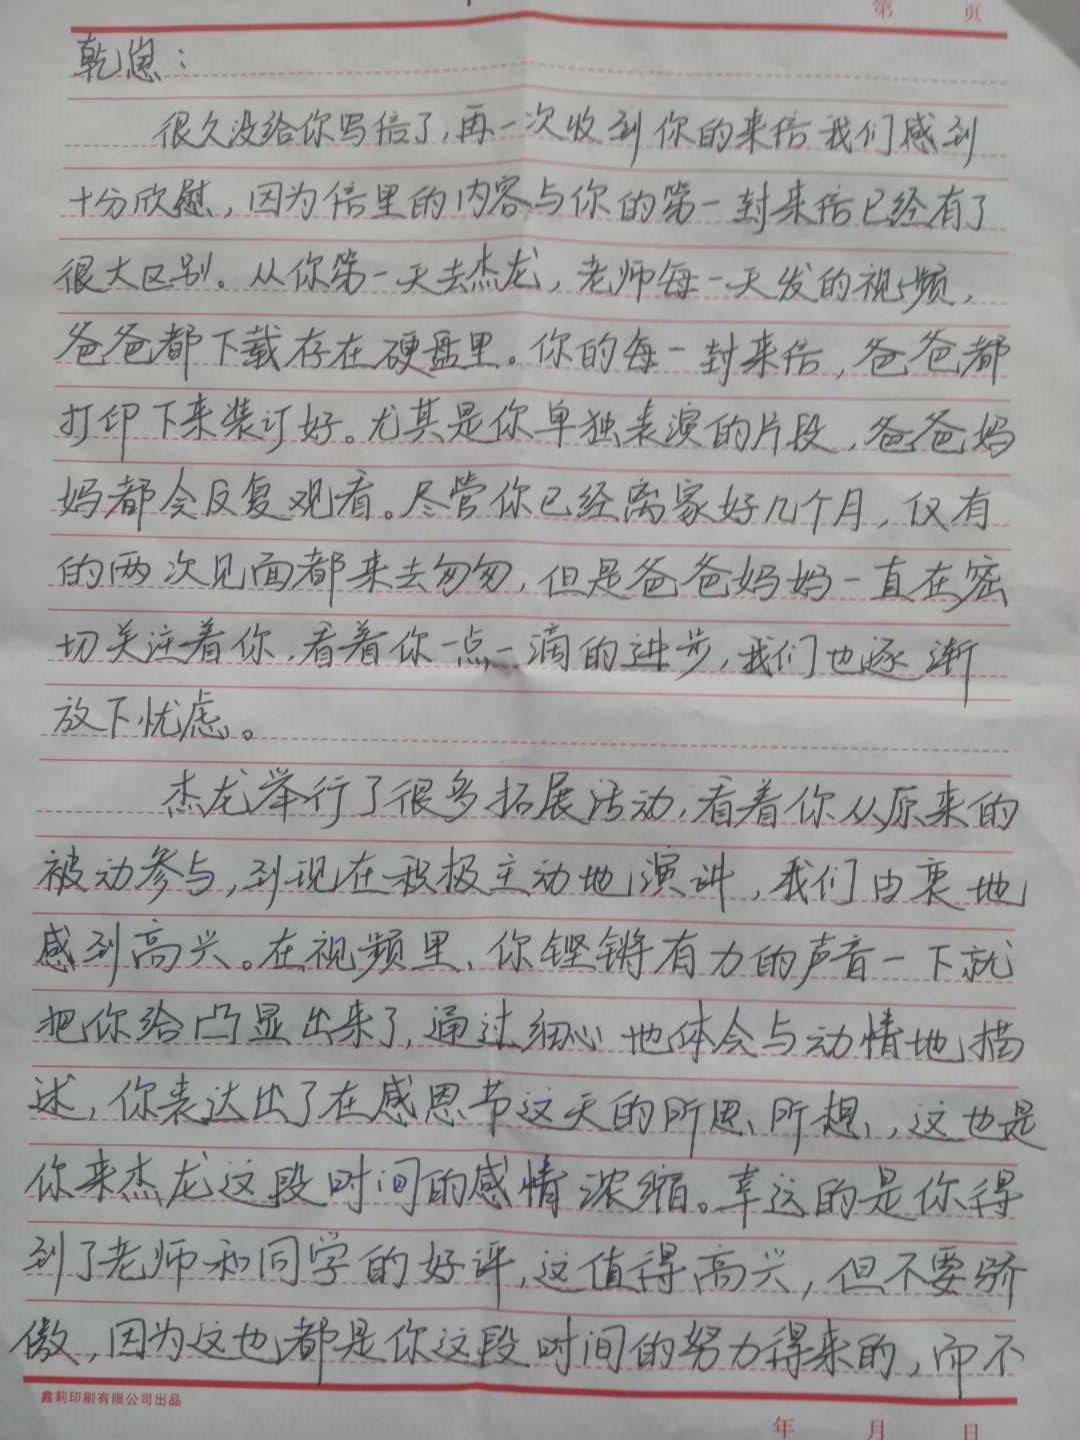 第 页
乾崽：
很久没给你写信了，再一次收到你的来信我们感到
十分欣慰，因为信里的内容与你的第一封来信已经有了
很大区别。从你第一天去杰龙，老师每一天发的视频，
爸爸都下载存在硬盘里。你的每一封来信，爸爸都
打印下来装订好。尤其是你单独表演的片段，爸爸妈
妈都会反复观看。尽管你已经离家好几个月，仅有
的两次见面都来去匆匆，但是爸爸妈妈一直在密
切关注着你，看着你一点一滴的进步，我们也逐渐
放下忧虑。
杰龙举行了很多拓展活动，看着你从原来的
被动参与，到现在积极主动地演讲，我们由衷地
感到高兴。在视频里，你铿锵有力的声音一下就
把你给凸显出来了，通过细心地体会与动情地描
述，你表达出了在感恩节这天的所思、所想，这也是
你来杰龙这段时间的感情浓缩。幸运的是你得
到了老师和同学的好评，这值得高兴，但不要骄
傲，因为这也都是你这段时间的努力得来的，而不
鑫莉印刷有限公司出品
年 月 日